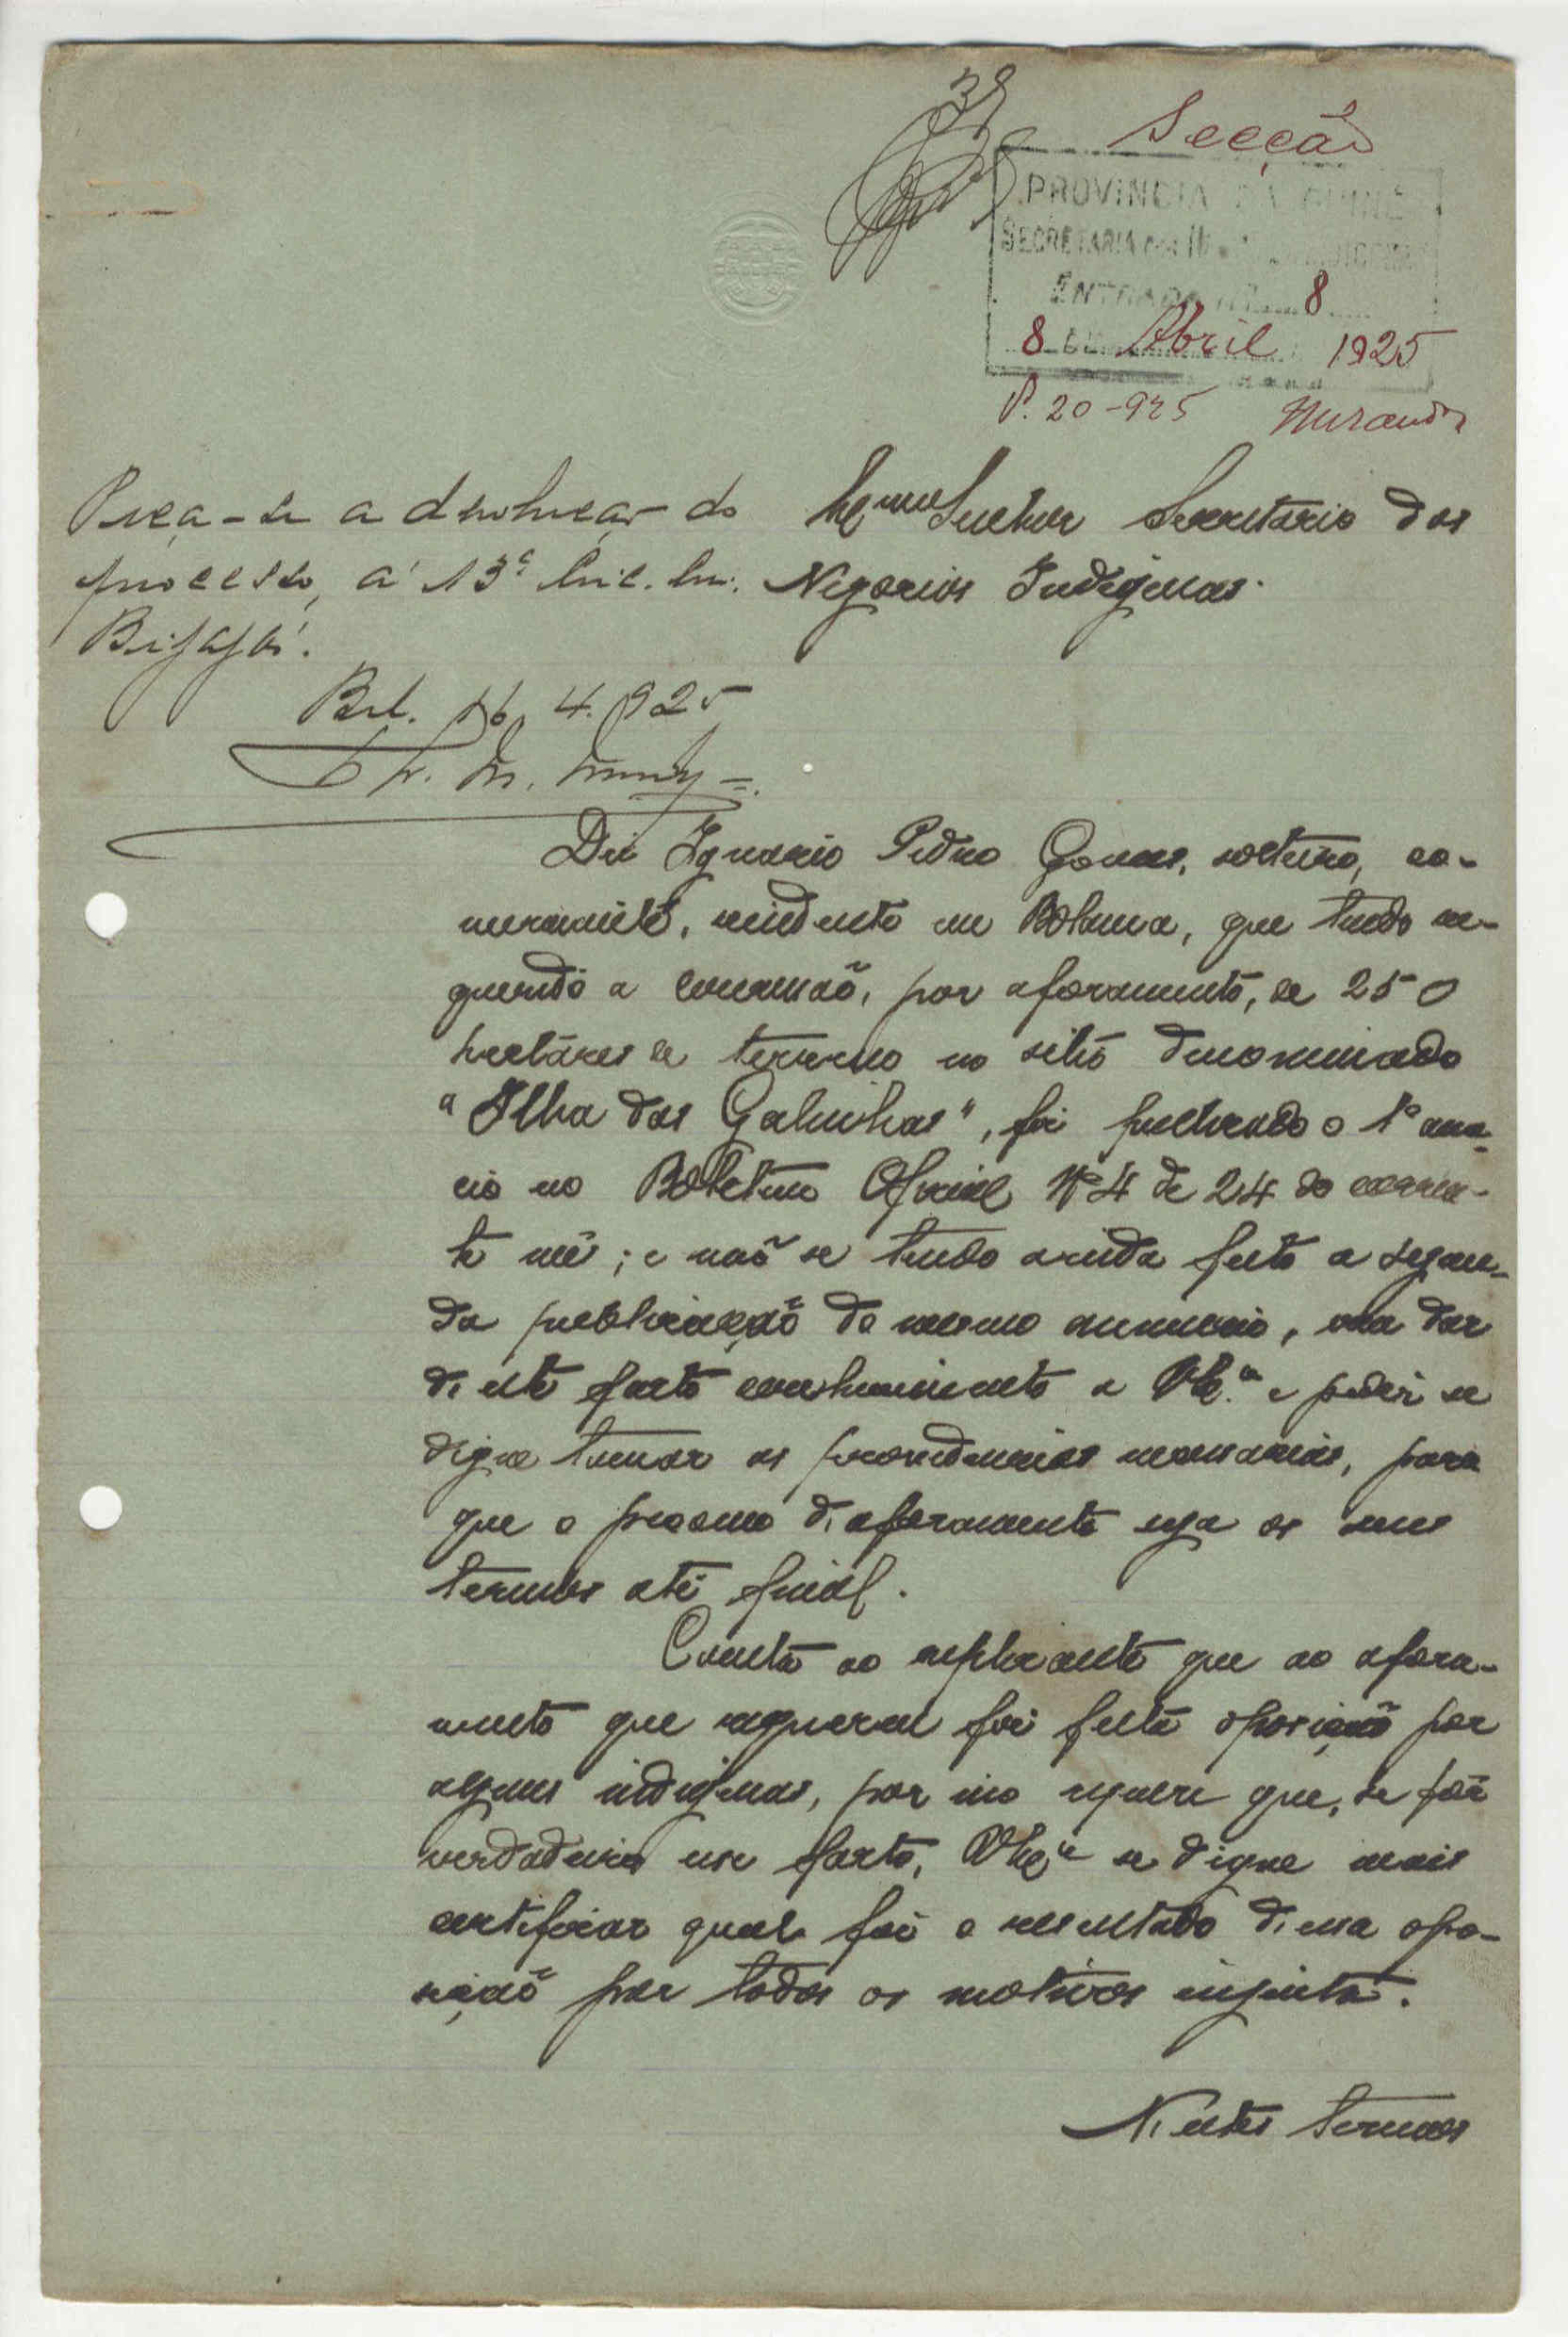 38
Secção
PROVINCIA DA GUINÉ
SECRETARIA DOS
ENTRADA Nº 8
8 DE Abril 1925
P. 20-925
Peça-se a devolução do
processo, á 13ª
Bijagós.
Bol. 16. 4. 925
Exmo Senhor Secretario dos
Negocios Indigenas.
Diz Ignacio Pedro Gomes, solteiro, co-
merciante, residente em Bolama, que tendo re-
querido a concessão, por aforamento, de 250
hectáres de terreno no sitio denominado
"Ilha das Galinhas", foi publicado o 1º anun-
cio no Boletim Oficial Nº 4 de 24 do corren-
te mês; e não se tendo ainda feito a segun-
da publicação do mesmo anuncio, vem dar
d'este facto conhecimento a V. Exª e pedir se
digne tomar as providencias necessarias, para
que o processo d'aforamento siga os seus
termos até final.
Consta ao suplicante que ao afora-
mento que requereu foi feita oposição por
alguns indigenas, por isso requere que, se fôr
verdadeiro esse facto, V. Exª se digne mais
certificar qual foi o resultado d'essa opo-
sição por todos os motivos injusta.
N'estes termos